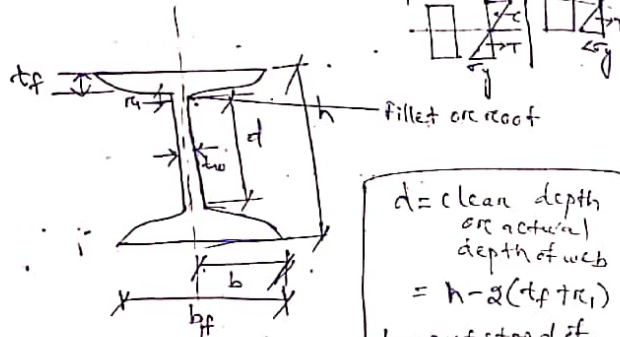 C
T
σy
σy
tf
r1
tw
d
h
Fillet or root
b
bf
d = clear depth
or actual
depth of web
= h-2(tf+r1)